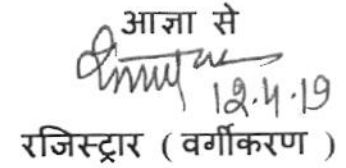 आज्ञा से
12.4.19
रजिस्ट्रार ( वर्गीकरण )